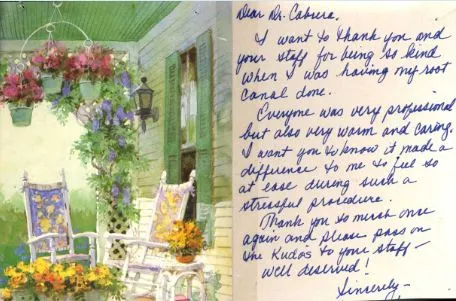 Dear Dr. Cabrera,
I want to thank you and
your staff for being so kind
when I was having my root
canal done.
Everyone was very professional
but also very warm and caring.
I want you to know it made a
difference to me to feel so
at ease during such a
stressful procedure.
Thank you so much once
again and please pass on
the Kudos to your staff —
well deserved!
Sincerely —